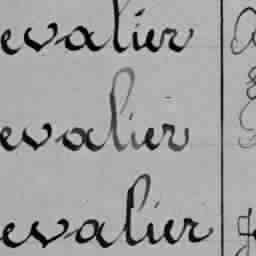 evalier
evalier
evalier